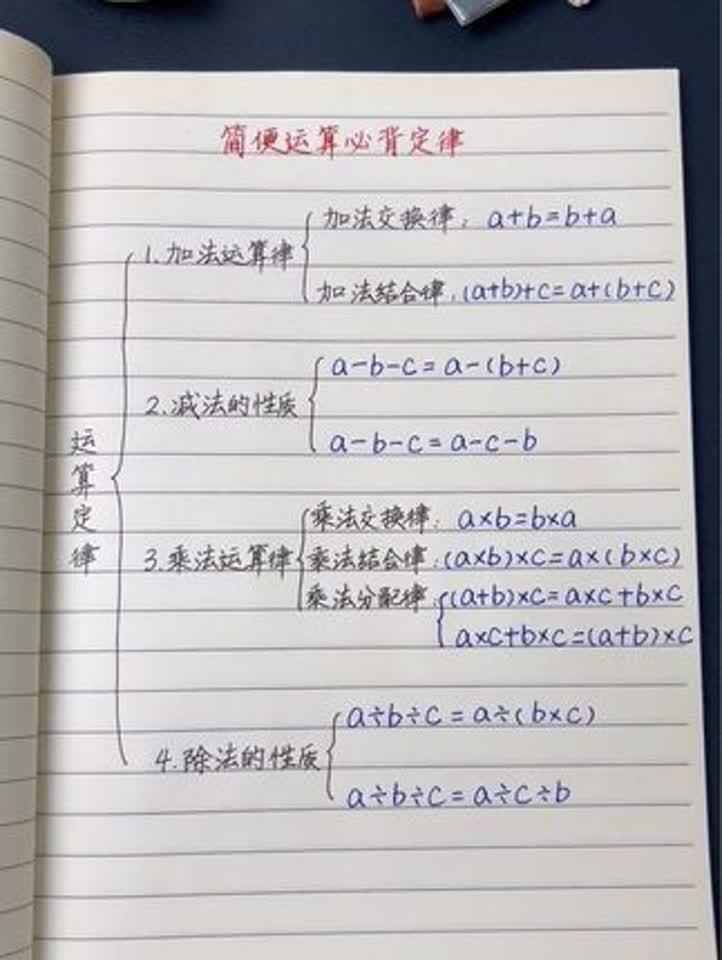 简便运算必背定律
运算定律
1.加法运算律
加法交换律：a+b=b+a
加法结合律：(a+b)+c=a+(b+c)
2.减法的性质
a-b-c=a-(b+c)
a-b-c=a-c-b
3.乘法运算律
乘法交换律：a×b=b×a
乘法结合律：(a×b)×c=a×(b×c)
乘法分配律：(a+b)×c=a×c+b×c
a×c+b×c=(a+b)×c
4.除法的性质
a÷b÷c=a÷(b×c)
a÷b÷c=a÷c÷b